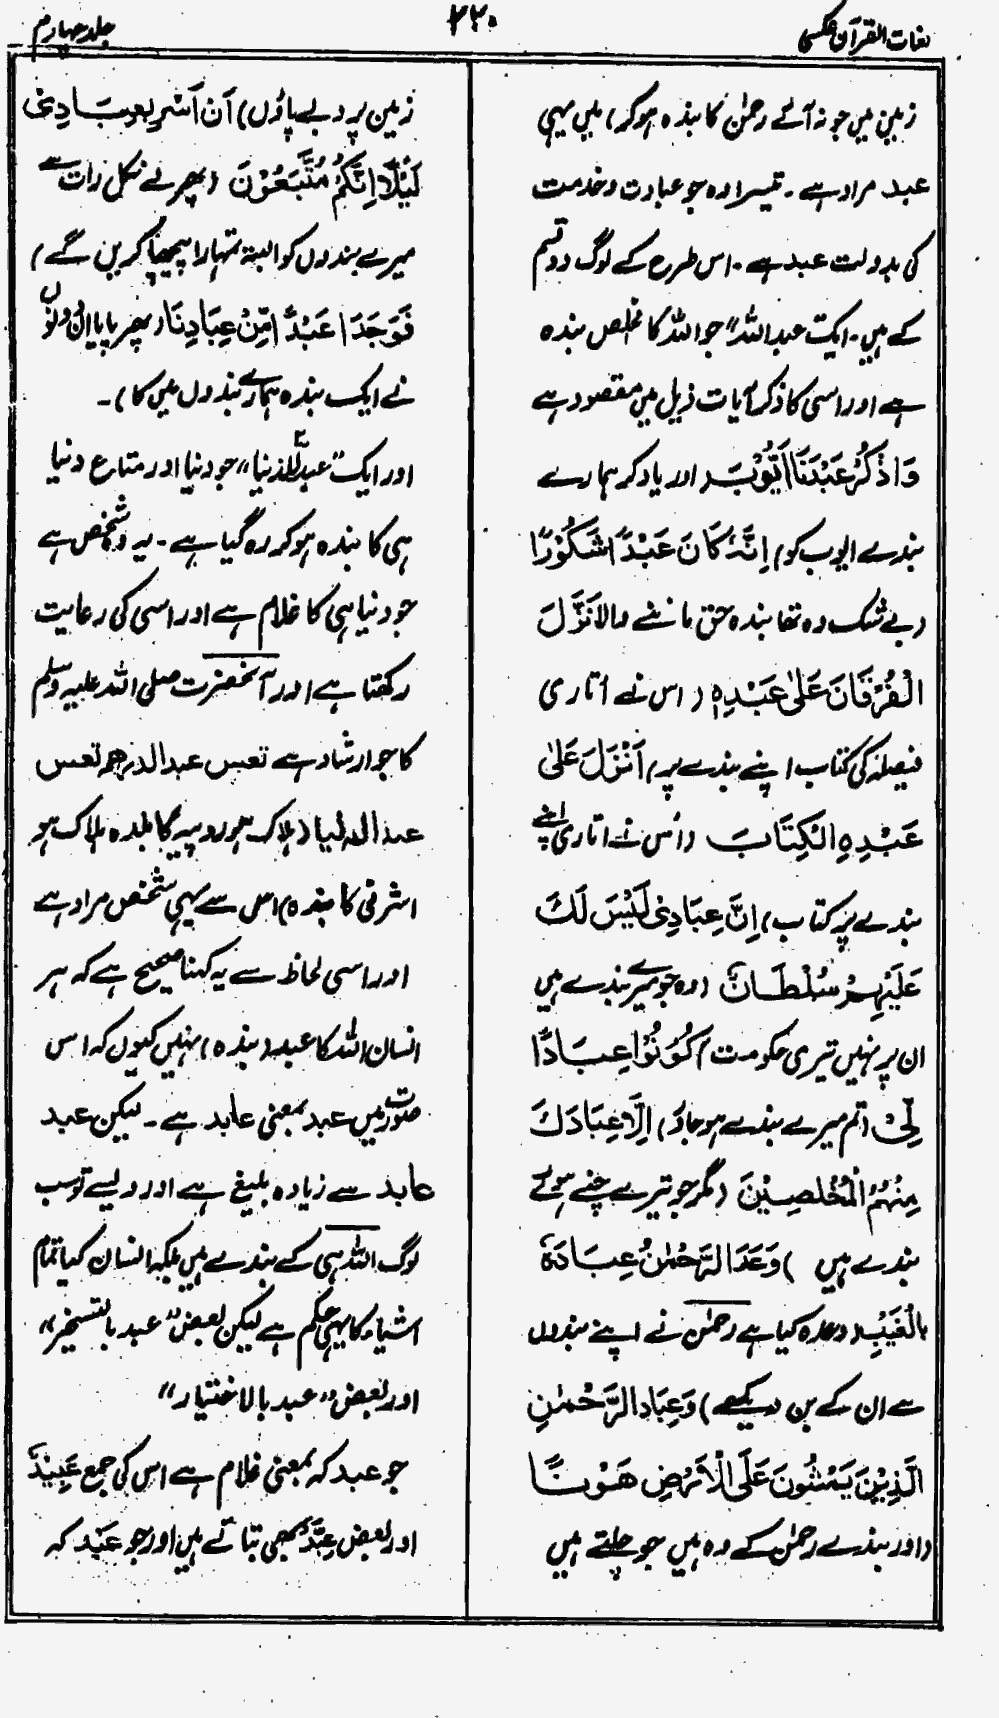 لغات القرآن عکسی
۲۲۰
جلد چہارم
زمین میں جو نہ آئے رحمٰن کا بندہ ہوکر) میں یہی
عبد مراد ہے ۔ تیسرا وہ جو عبادت و خدمت
کی بدولت عبد ہے ۔ اس طرح کے لوگ دو قسم
کے ہیں ۔ ایک "عبد اللہ" جو اللہ کا مخلص بندہ
ہے اور اسی کا ذکر آیات ذیل میں مقصود ہے
وَاذْكُرْ عَبْدَنَا اَيُّوْبَ (اور یاد کر ہمارے
بندے ایوب کو) اِنَّهٗ كَانَ عَبْدًا شَكُوْرًا
(بے شک وہ تھا بندہ حق ماننے والا) نَزَّلَ
الْفُرْقَانَ عَلٰى عَبْدِهٖ (اس نے اتاری
فیصلہ کی کتاب اپنے بندے پر) اَنْزَلَ عَلٰى
عَبْدِهِ الْكِتَابَ (اُس نے اتاری اپنے
بندے پر کتاب) اِنَّ عِبَادِىْ لَيْسَ لَكَ
عَلَيْهِمْ سُلْطَانٌ (وہ جو میرے بندے ہیں
ان پر نہیں تیری حکومت) كُوْنُوْا عِبَادًا
لِّىْ (تم میرے بندے ہو جاؤ) اِلَّا عِبَادَكَ
مِنْهُمُ الْمُخْلَصِيْنَ (مگر جو تیرے چنے ہوئے
بندے ہیں) وَعَدَ الرَّحْمٰنُ عِبَادَهٗ
بِالْغَيْبِ (وعدہ کیا ہے رحمٰن نے اپنے بندوں
سے ان کے بن دیکھے) وَعِبَادُ الرَّحْمٰنِ
الَّذِيْنَ يَمْشُوْنَ عَلَى الْاَرْضِ هَوْنًا
(اور بندے رحمٰن کے وہ ہیں جو چلتے ہیں
زمین پر دبے پاؤں) اَنْ اَسْرِ بِعِبَادِىْ
لَيْلًا اِنَّكُمْ مُّتَّبَعُوْنَ (پھر لے نکل رات سے
میرے بندوں کو البتہ تمہارا پیچھا کریں گے)
فَوَجَدَا عَبْدًا مِّنْ عِبَادِنَا (پھر پایا ان دونوں
نے ایک بندہ ہمارے بندوں میں کا) ۔
اور ایک "عبد للدنیا" جو دنیا اور متاع دنیا
ہی کا بندہ ہوکر رہ گیا ہے ۔ یہ وہ شخص ہے
جو دنیا ہی کا غلام ہے اور اسی کی رعایت
رکھتا ہے اور آنحضرت صلی اللہ علیہ وسلم
کا جو ارشاد ہے تعس عبد الدرهم تعس
عبد الدینار (ہلاک ہو روپیہ کا بندہ ہلاک ہو
اشرفی کا بندہ) اس سے یہی شخص مراد ہے
اور اسی لحاظ سے یہ کہنا صحیح ہے کہ ہر
انسان اللہ کا عبد (بندہ) نہیں کیوں کہ اس
صورت میں عبد بمعنی عابد ہے ۔ لیکن عبد
عابد سے زیادہ بلیغ ہے اور ویسے تو سب
لوگ اللہ ہی کے بندے ہیں بلکہ انسان کیا تمام
اشیاء کا یہی حکم ہے لیکن بعض "عبد بالتسخیر"
اور بعض "عبد بالاختیار"
جو عبد کہ بمعنی غلام ہے اس کی جمع عَبِیْدٌ
اور بعض عِبِدّٰی بھی بتاتے ہیں اور جو عَبْد کہ